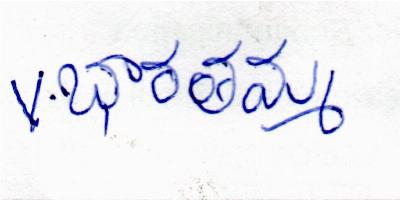 V. భారతమ్మ